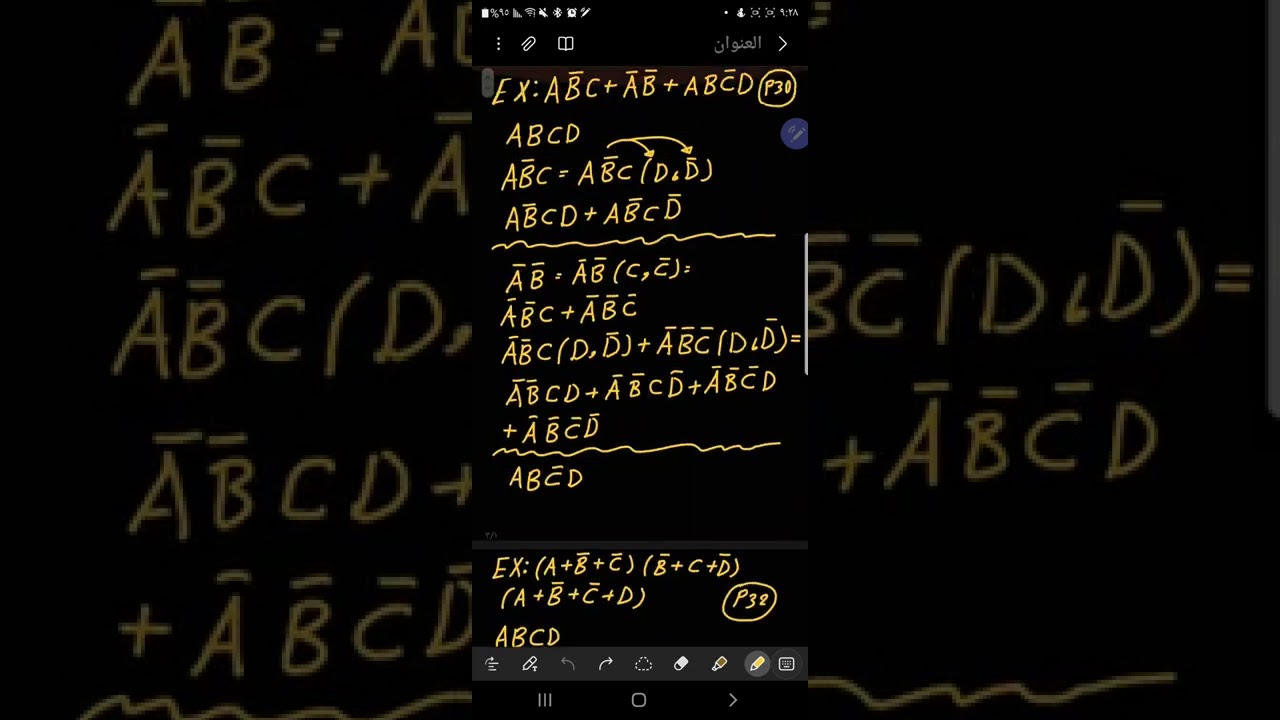 %٩٥ ٩:٢٨
العنوان
EX: AB̅C + A̅B̅ + ABC̅D P30
ABCD
AB̅C = AB̅C(D،D̅)
AB̅CD + AB̅CD̅
A̅B̅ = A̅B̅(C,C̅)=
A̅B̅C + A̅B̅C̅
A̅B̅C(D,D̅) + A̅B̅C̅(D،D̅)=
A̅B̅CD + A̅B̅CD̅ + A̅B̅C̅D
+ A̅B̅C̅D̅
ABC̅D
٣/١
EX: (A+B̅+C̅) (B̅+C+D̅)
(A+B̅+C̅+D) P32
ABCD